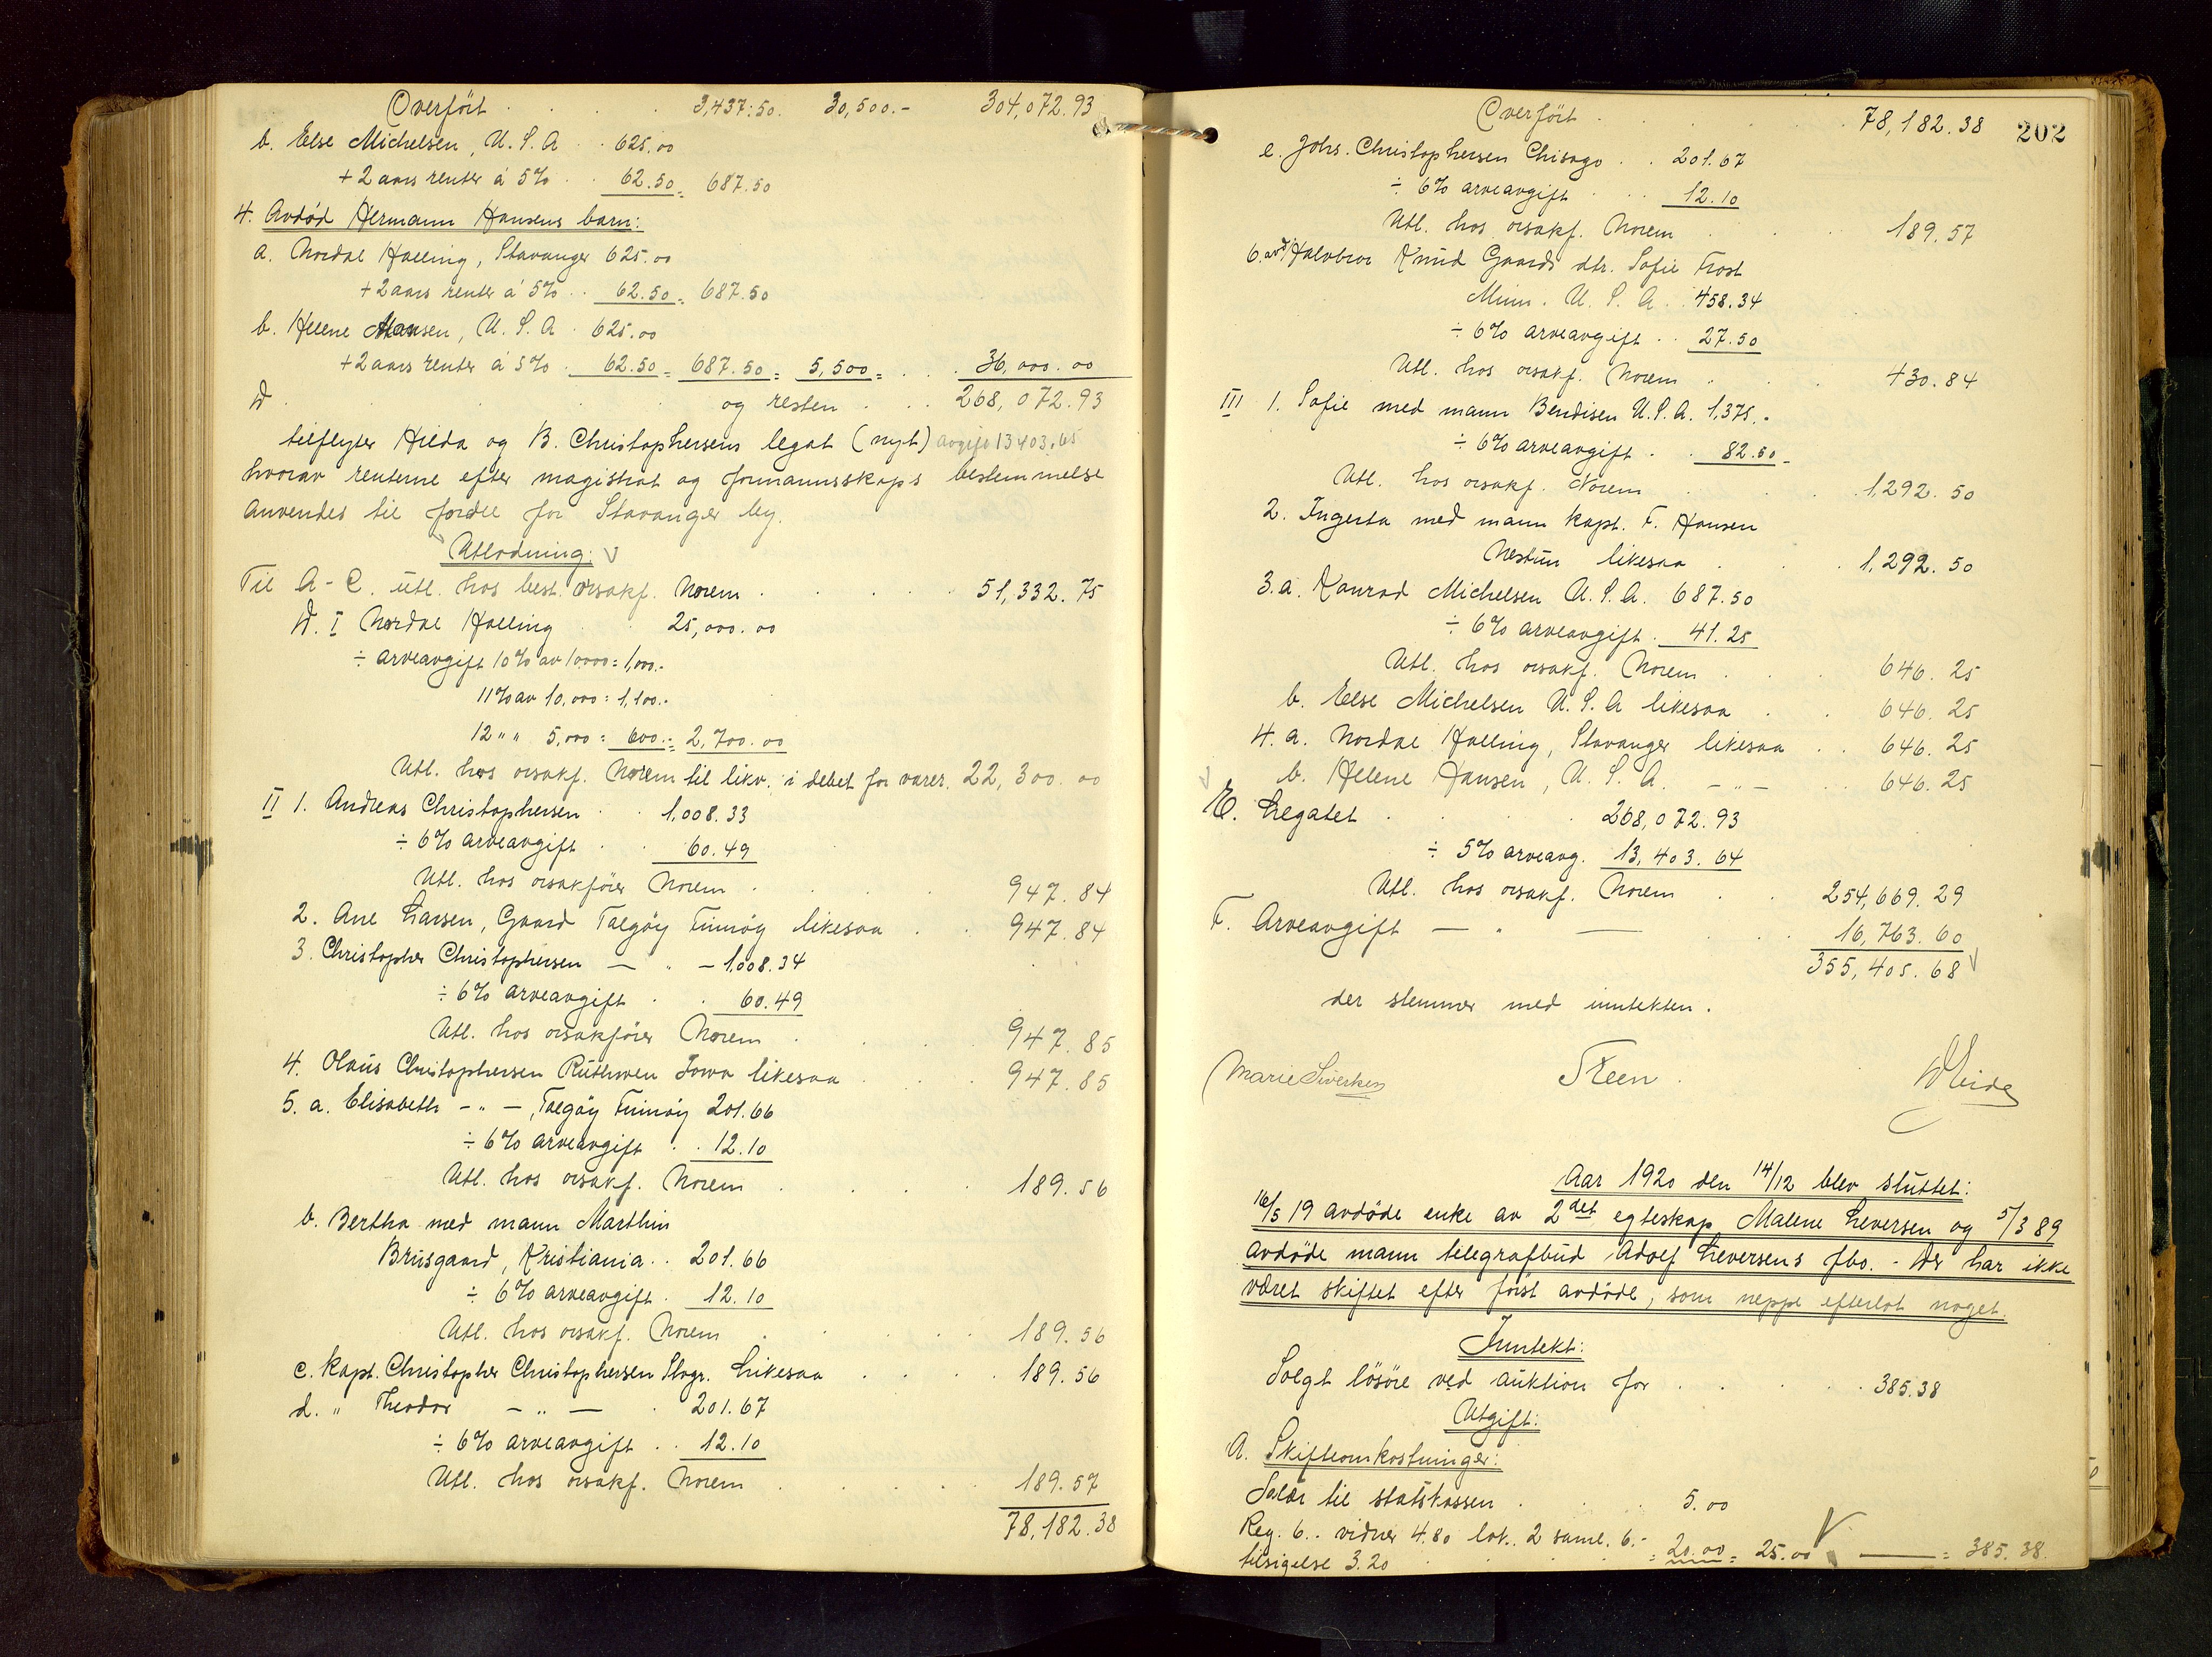 Overført 3,437:50. 30,500.- 304,072.93
b. Else Michelsen, U.S.A 625.00
+ 2 aars renter á 5% 62.50 = 687.50
4. Avdød Hermann Hansens barn:
a. Nordal Halling, Stavanger 625.00
+ 2 aars renter á 5% 62.50 = 687.50
b. Helene Hansen, U.S.A 625.00
+ 2 aars renter á 5% 62.50 = 687.50 = 5,500 = 36,000.00
og resten 268,072.93
tilflyter Hilda og B. Christophersens legat (nyt) avgift 13403.65
hvorav renterne efter magistrat og formannsskaps bestemmelse
anvendes til fordel for Stavanger by.
Utlodning:
Til A - C. utl. hos best. orsakf. Norem 51,332.75
D. I Nordal Halling 25,000.00
÷ arveavgift 10% av 10000 = 1,000.-
11% av 10,000 = 1,100.-
12 " " 5,000 = 600.- = 2,700.00
Utl. hos orsakf. Norem til likv. i debet for varer. 22,300.00
II 1. Andreas Christophersen 1,008.33
÷ 6% arveavgift 60.49
Utl. hos orsakfører Norem 947.84
2. Ane Larsen, Gaard Talgøy Finnøy likesaa 947.84
3. Christopher Christophersen — " — 1,008.34
÷ 6% arveavgift 60.49
Utl. hos orsakfører Norem 947.85
4. Olaus Christophersen Ruthwen Iowa likesaa 947.85
5. a. Elisabeth - " -, Talgøy Finnøy 201.66
÷ 6% arveavgift 12.10
Utl. hos orsakf. Norem 189.56
b. Bertha med mann Marthin
Brusgaard, Kristiania 201.66
÷ 6% arveavgift 12.10
Utl. hos orsakf. Norem 189.56
c. Kapt. Christopher Christophersen Stvgr. Likesaa 189.56
d. " Theodor - " - 201.67
÷ 6% arveavgift 12.10
Utl. hos orsakf. Norem 189.57
78,182.38
Overført 78,182.38
202
e. Johs. Christophersen Chicago 201.67
÷ 6% arveavgift 12.10
Utl. hos orsakf. Norem 189.57
6. avd. Halvbror Knud Gaards dtr. Sofie Frost
Minn. U.S.A. 458.34
÷ 6% arveavgift 27.50
Utl. hos orsakf. Norem 430.84
III 1. Sofie med mann Bendixen U.S.A. 1,375.-
÷ 6% arveavgift 82.50
Utl. hos orsakf. Norem 1,292.50
2. Ingerta med mann kapt. F. Hansen
Nestun likesaa 1,292.50
3. a. Konrad Michelsen U.S.A. 687.50
÷ 6% arveavgift 41.25
Utl. hos orsakf. Norem 646.25
b. Else Michelsen U.S.A likesaa 646.25
4. a. Nordal Halling, Stavanger likesaa 646.25
b. Helene Hansen, U.S.A. - " - 646.25
E. Legatet 268,072.93
÷ 5% arveavg. 13,403.64
Utl. hos orsakf. Norem 254,669.29
F. Arveavgift — " — 16,763.60
355,405.68
der stemmer med inntekten.
Marie Siverksen Steen
Aar 1920 den 14/12 blev sluttet:
16/5 19 avdøde enke av 2det egteskap Malene Leversen og 5/3 89
avdøde mann telegrafbud Adolf Leversens fbo. - Der har ikke
været skiftet efter først avdøde, som neppe efterlot noget.
Inntekt:
Solgt løsøre ved auktion for 385.38
Utgift:
A. Skifteomkostninger:
Salær til statskassen 5.00
Reg. 6.. vidner 4.80 lok. 2 saml. 6.-
tilsigelse 3.20 = 20.00 = 25.00 — = 385.38